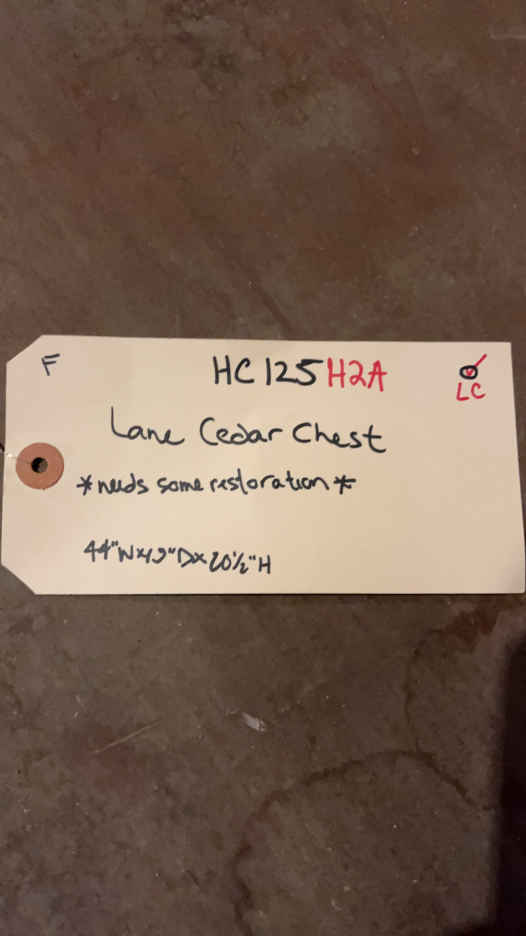 F
HC125 H2A
LC
Lane Cedar Chest
*needs some restoration*
44"W x 19"D x 20½"H